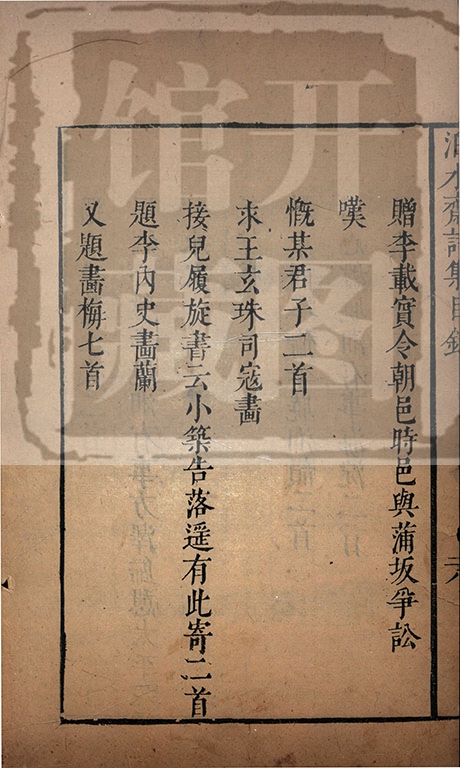 泊水齋詩集目錄
贈李載實令朝邑時邑與蒲坂爭訟
嘆
慨某君子二首
求王玄珠司寇畫
接兒履旋書云小築告落遥有此寄二首
題李內史畫蘭
又題畫梅七首
开图
馆藏